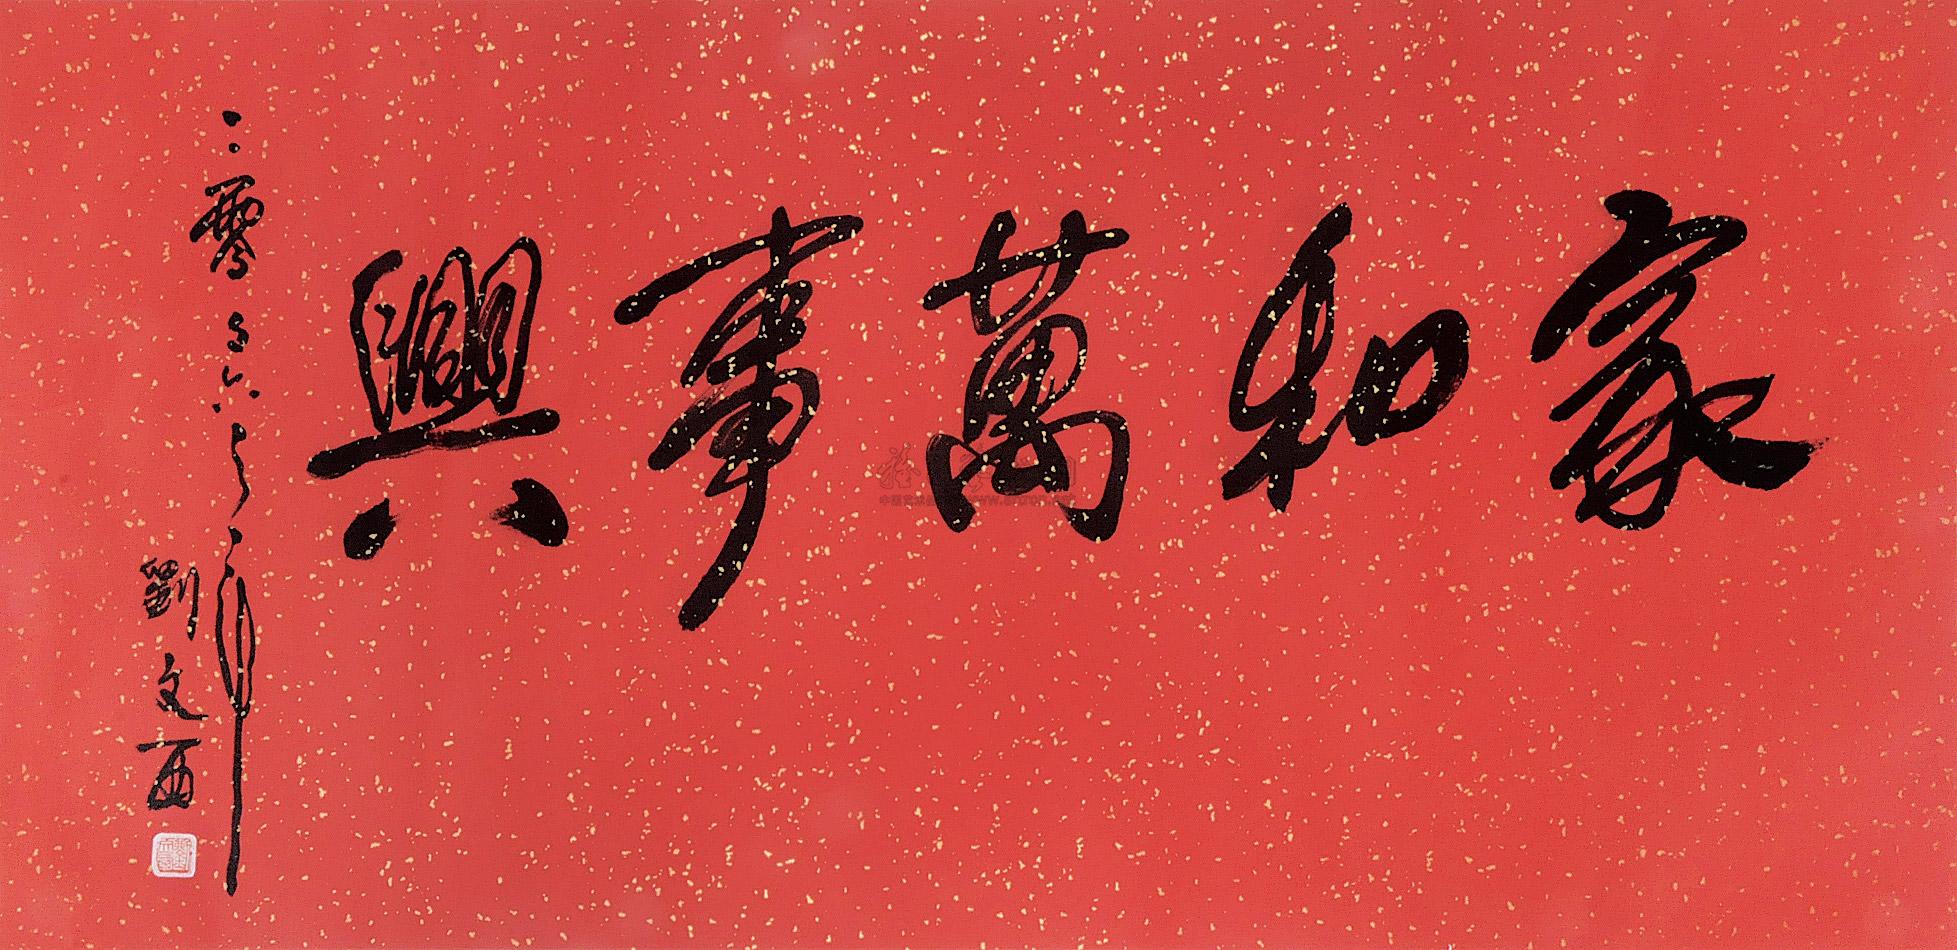 家和萬事興
二零零六年
劉文西